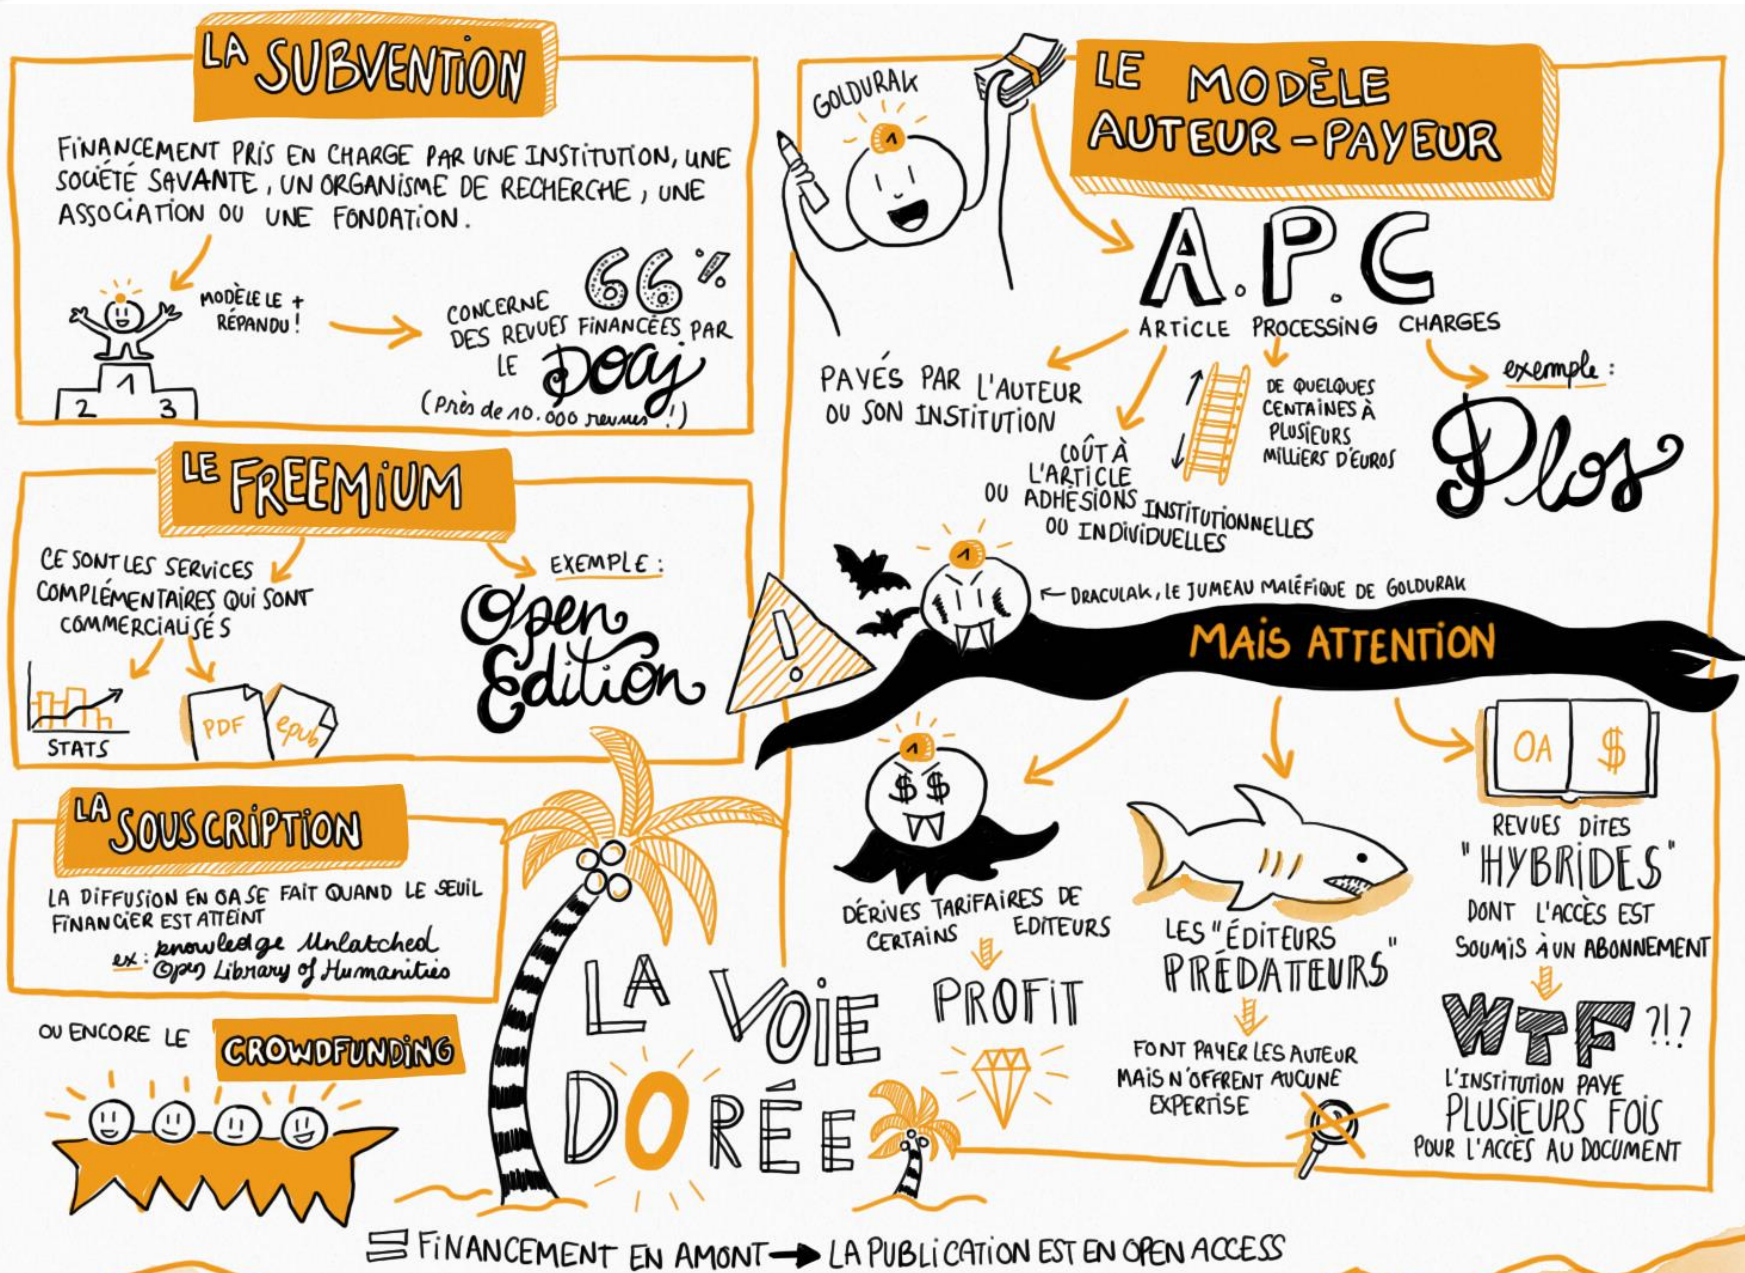 LA SUBVENTION
FINANCEMENT PRIS EN CHARGE PAR UNE INSTITUTION, UNE
SOCIÉTÉ SAVANTE, UN ORGANISME DE RECHERCHE, UNE
ASSOCIATION OU UNE FONDATION.
MODÈLE LE +
RÉPANDU !
1
2 3
CONCERNE 66%
DES REVUES FINANCÉES PAR
LE Doaj
(Près de 10.000 revues !)
LE FREEMIUM
CE SONT LES SERVICES
COMPLÉMENTAIRES QUI SONT
COMMERCIALISÉS
STATS
PDF
epub
EXEMPLE :
Open
Edition
LA SOUSCRIPTION
LA DIFFUSION EN OA SE FAIT QUAND LE SEUIL
FINANCIER EST ATTEINT
ex : knowledge Unlatched
Open Library of Humanities
OU ENCORE LE CROWDFUNDING
LA VOIE
DORÉE
GOLDURAK
1
LE MODÈLE
AUTEUR-PAYEUR
A.P.C
ARTICLE PROCESSING CHARGES
PAYÉS PAR L'AUTEUR
OU SON INSTITUTION
COÛT À
L'ARTICLE
OU ADHÉSIONS INSTITUTIONNELLES
OU INDIVIDUELLES
DE QUELQUES
CENTAINES À
PLUSIEURS
MILLIERS D'EUROS
exemple :
Plos
1
DRACULAK, LE JUMEAU MALÉFIQUE DE GOLDURAK
!
MAIS ATTENTION
1
$ $
DÉRIVES TARIFAIRES DE
CERTAINS EDITEURS
PROFIT
LES "ÉDITEURS
PRÉDATEURS"
FONT PAYER LES AUTEUR
MAIS N'OFFRENT AUCUNE
EXPERTISE
OA $
REVUES DITES
"HYBRIDES"
DONT L'ACCÈS EST
SOUMIS À UN ABONNEMENT
WTF ?!?
L'INSTITUTION PAYE
PLUSIEURS FOIS
POUR L'ACCÈS AU DOCUMENT
= FINANCEMENT EN AMONT → LA PUBLICATION EST EN OPEN ACCESS